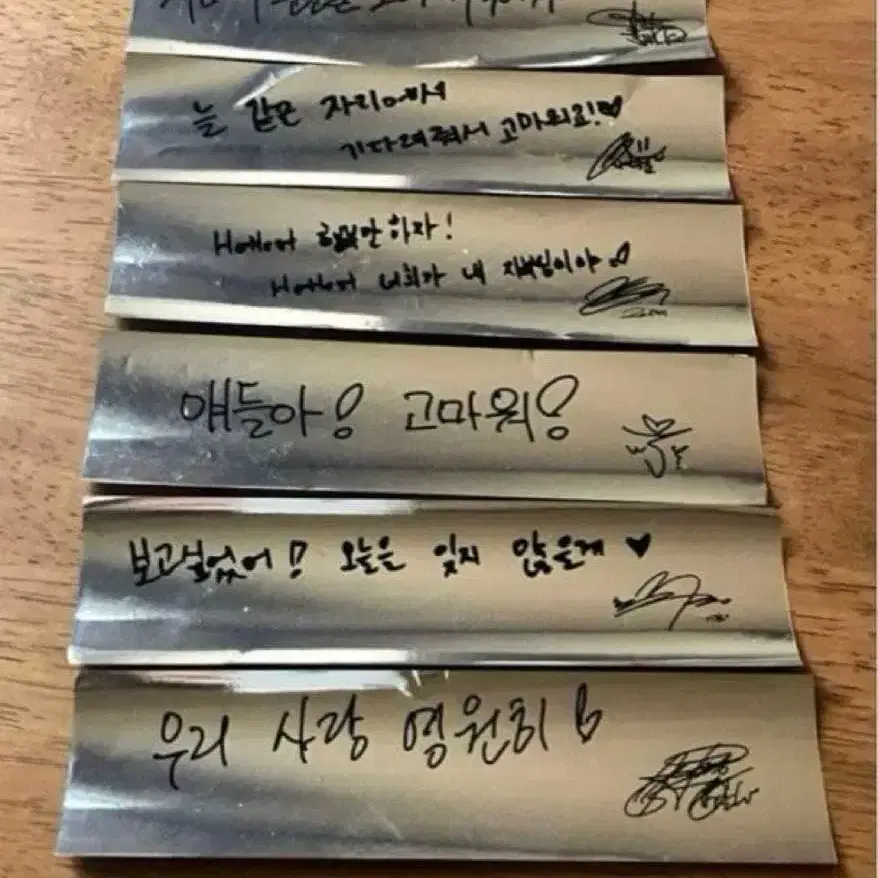 늘 같은 자리에서
기다려줘서 고마워요!♥
Hottest 행복만하자!
Hottest 너희가 내 자부심이야
얘들아! 고마워!
보고싶었어! 오늘은 잊지 않을게 ♥
우리 사랑 영원히